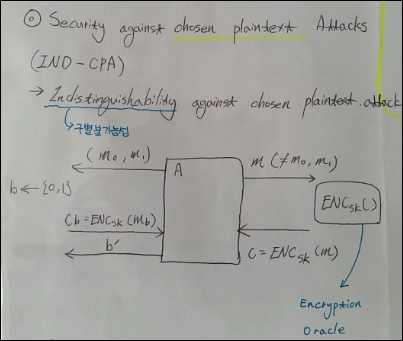 ◎ Security against chosen plaintext Attacks
(IND-CPA)
→ Indistinguishability against chosen plaintext attack
↳구별불가능성
(m₀, m₁)
A
m (≠m₀, m₁)
b ← {0,1}
ENCsk( )
Cb = ENCsk(mb)
b'
C = ENCsk(m)
Encryption
Oracle